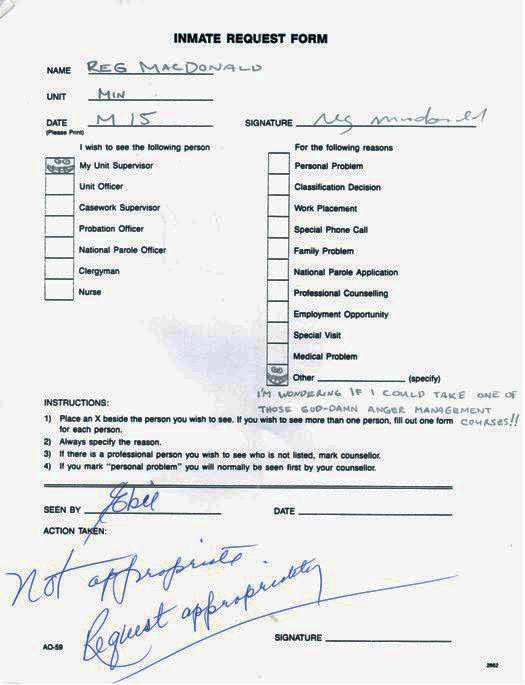 INMATE REQUEST FORM
NAME REG MACDONALD
UNIT MIN
DATE M 15
(Please Print)
SIGNATURE reg macdonald
I wish to see the following person
My Unit Supervisor
Unit Officer
Casework Supervisor
Probation Officer
National Parole Officer
Clergyman
Nurse
For the following reasons
Personal Problem
Classification Decision
Work Placement
Special Phone Call
Family Problem
National Parole Application
Professional Counselling
Employment Opportunity
Special Visit
Medical Problem
Other (specify)
I'M WONDERING IF I COULD TAKE ONE OF
THOSE GOD-DAMN ANGER MANAGEMENT
COURSES!!
INSTRUCTIONS:
1) Place an X beside the person you wish to see. If you wish to see more than one person, fill out one form
for each person.
2) Always specify the reason.
3) If there is a professional person you wish to see who is not listed, mark counsellor.
4) If you mark "personal problem" you will normally be seen first by your counsellor.
SEEN BY
DATE
ACTION TAKEN:
Not appropriate
Request appropriately
SIGNATURE
AO-59
2662